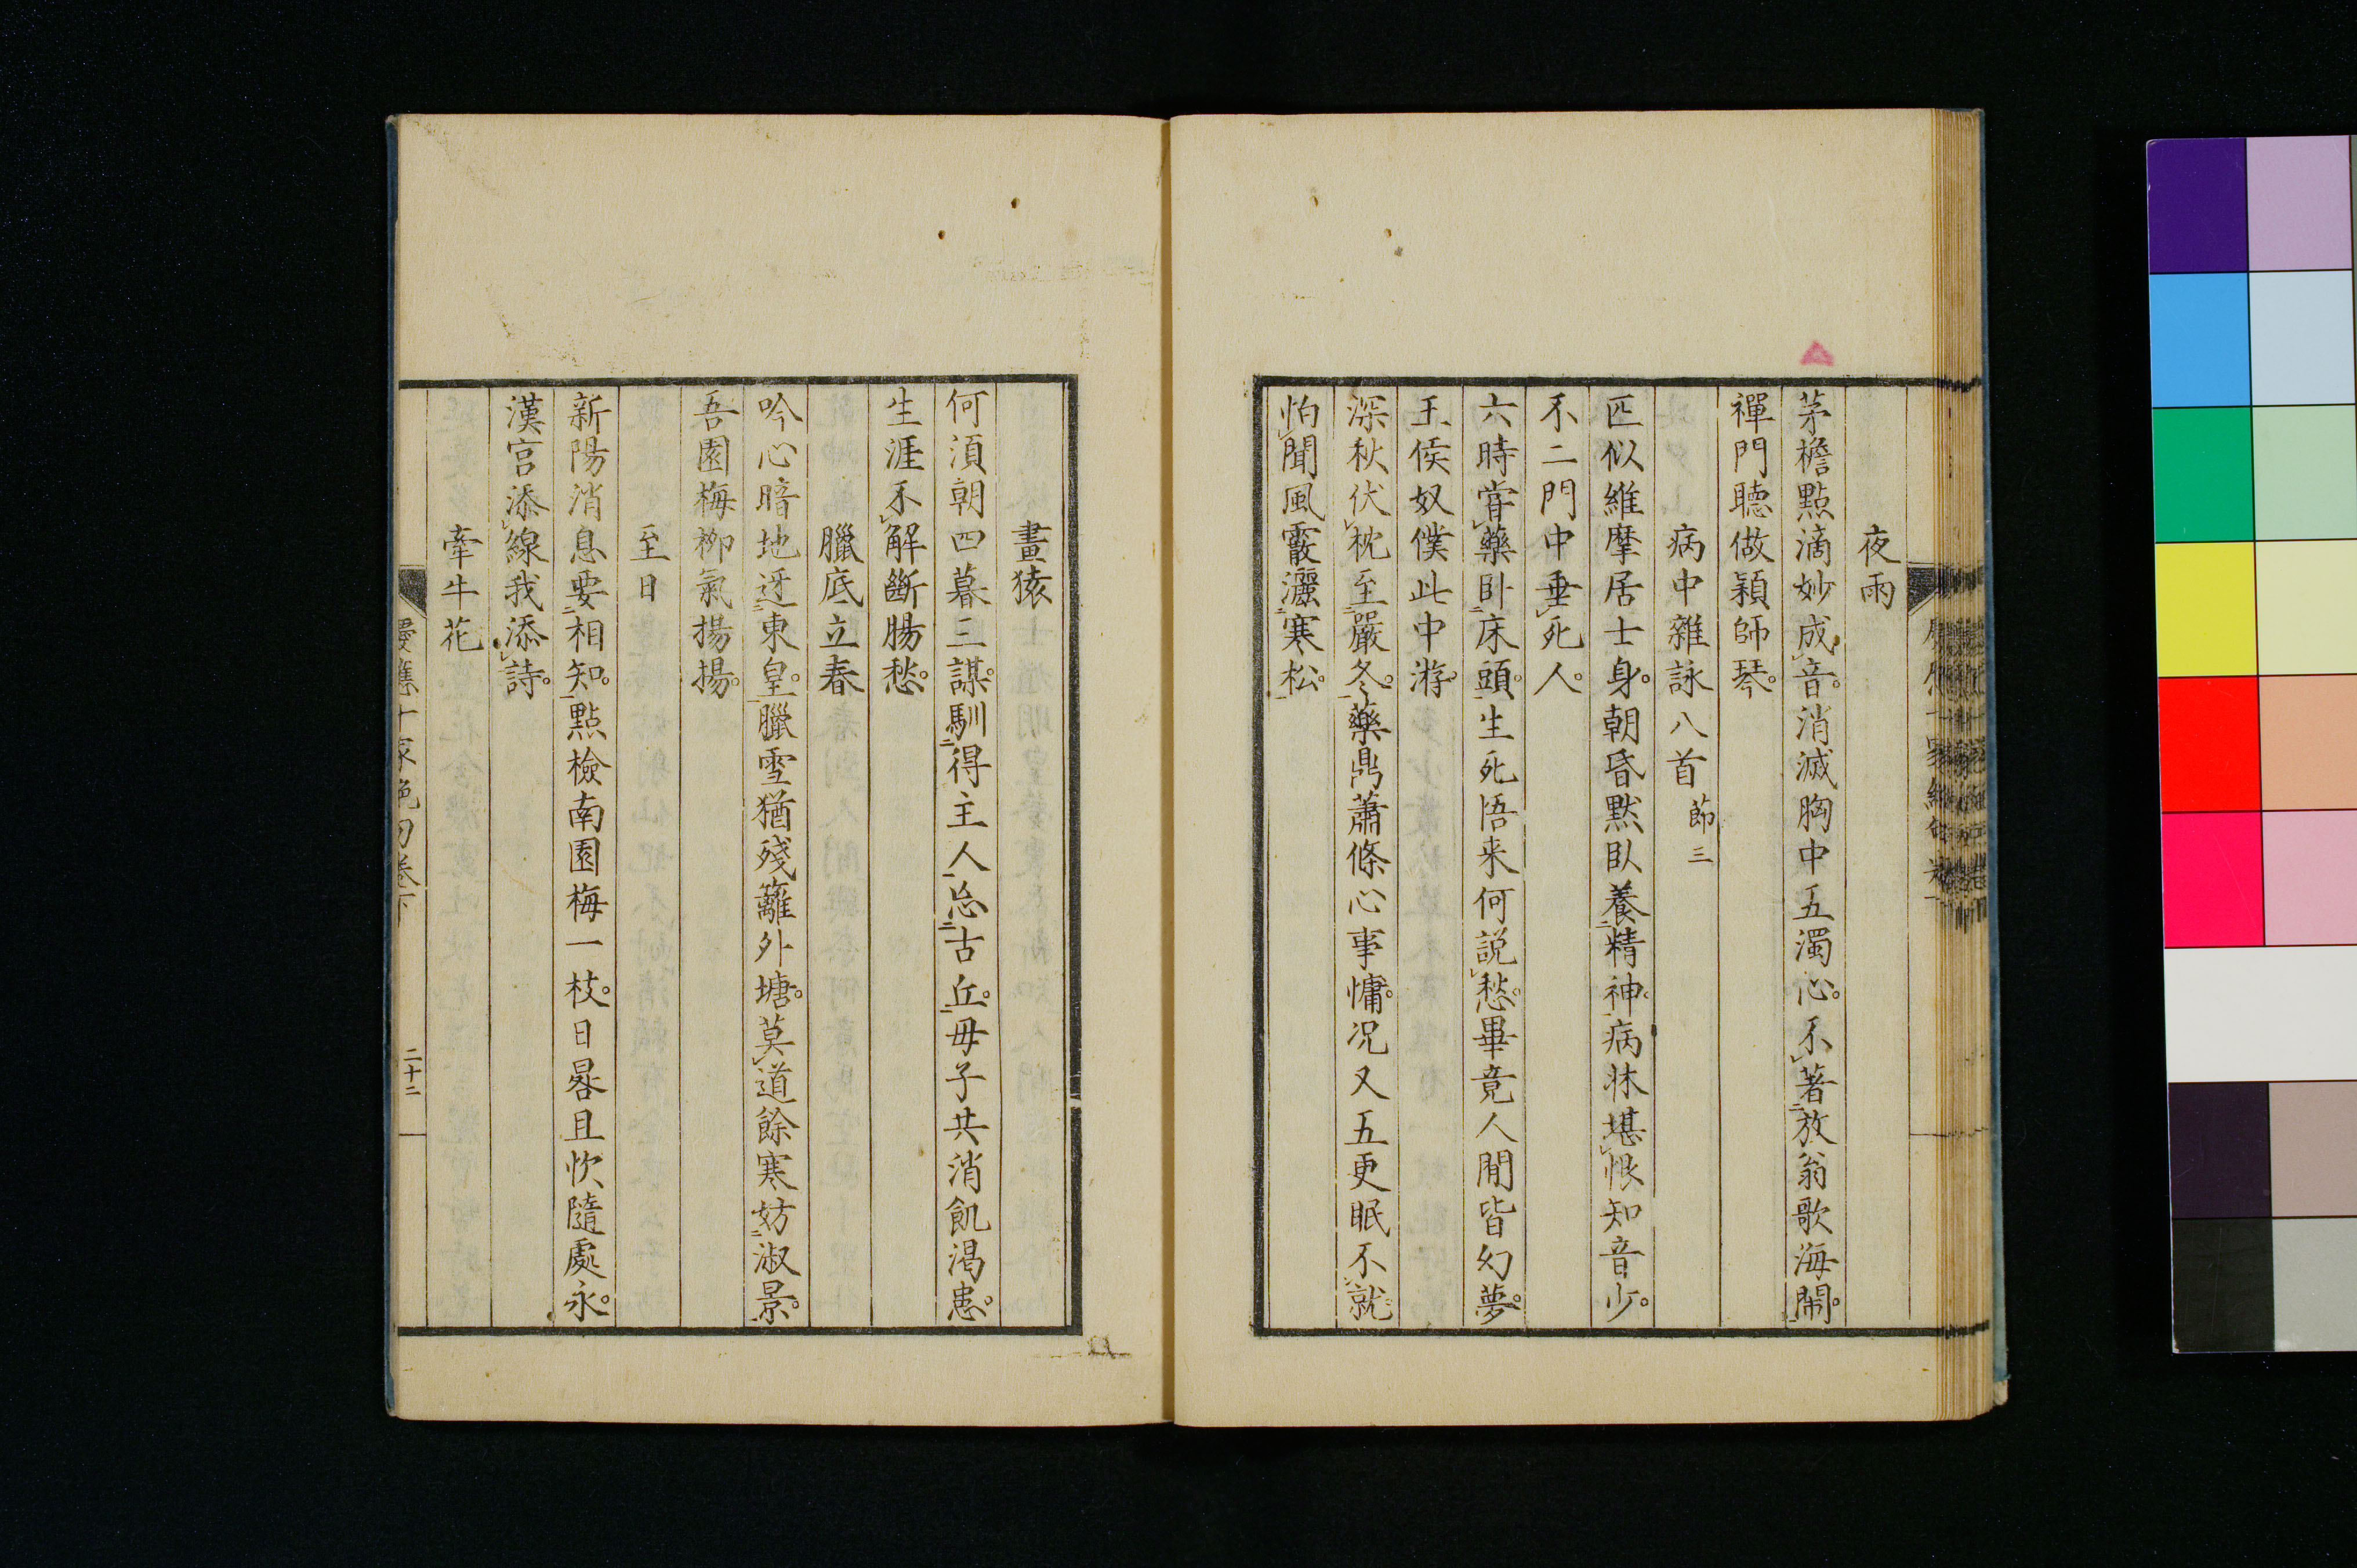 夜雨
茅檐點滴妙成音。消滅胸中五濁心。不著放翁歌海鬧。
禪門聽做穎師琴。
病中雜詠八首 節三
匹似維摩居士身。朝昏默臥養精神。病牀堪恨知音少。
不二門中垂死人。
六時甞藥臥床頭。生死悟来何説愁。畢竟人間皆幻夢。
王侯奴僕此中游。
深秋伏枕至嚴冬。藥鼎蕭條心事慵。况又五更眠不就。
怕聞風霰灑寒松。
畫猿
何須朝四暮三謀。馴得主人忘古丘。毋子共消飢渴患。
生涯不解斷腸愁。
臘底立春
吟心暗地迓東皇。臘雪猶殘籬外塘。莫道餘寒妨淑景。
吾園梅柳氣揚揚。
至日
新陽消息要相知。點檢南園梅一枝。日晷且忺隨處永。
漢宮添線我添詩。
牽牛花
慶應十家絶句卷下
二十二